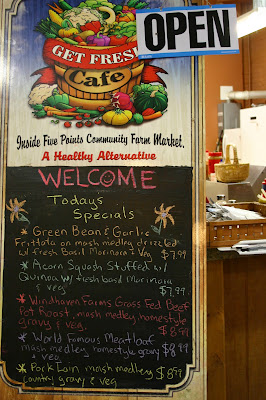 OPEN
GET FRESH
Cafe
Inside Five Points Community Farm Market.
A Healthy Alternative
WELCOME
Todays
Specials
* Green Bean & Garlic
Frittata on mash medley drizzled
w/ fresh Basil Marinara & Veg $7.99
* Acorn Squash Stuffed w/
Quinoa w/ fresh basil Marinara
& veg $7.99
* Windhaven Farms Grass Fed Beef
Pot Roast, mash medley, homestyle
gravy & veg. $8.99
* World Famous Meatloaf
mash medley, homestyle gravy $8.99
& veg
* Pork Loin mash medley $8.99
country gravy & veg